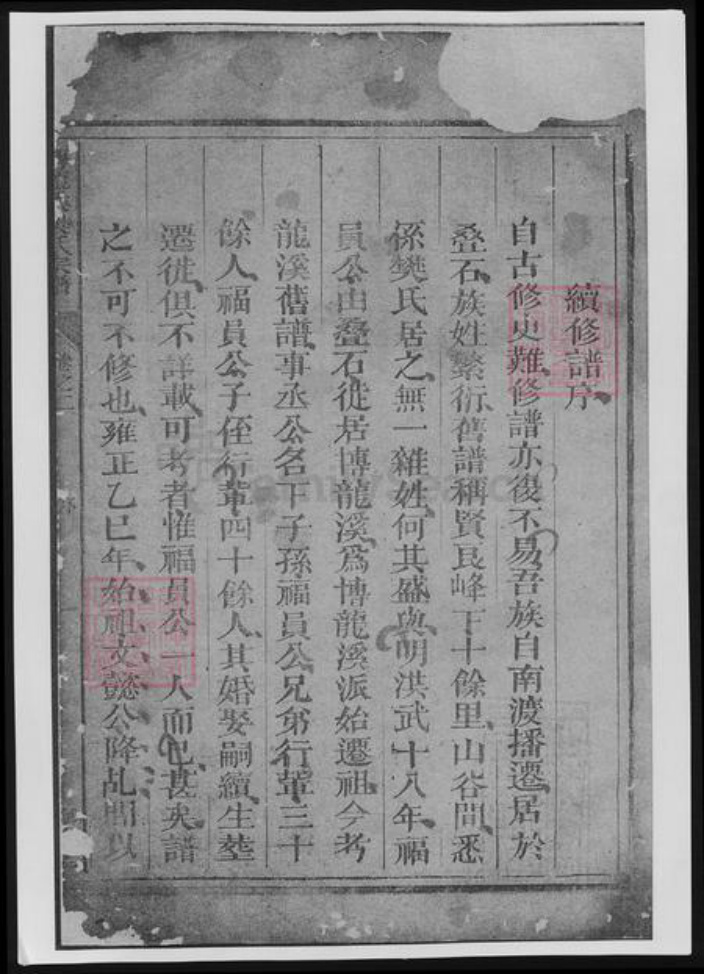 續修譜序
自古修史難修譜亦復不易吾族自南渡播遷居於
叠石族姓繁衍舊譜稱賢良峰下十餘里山谷間悉
係樊氏居之無一雜姓何其盛與明洪武十八年福
員公由叠石徙居博龍溪爲博龍溪派始遷祖今考
龍溪舊譜事丞公名下子孫福員公兄弟行輩三十
餘人福員公子侄行輩四十餘人其婚娶嗣續生塟
遷徙俱不詳載可考者惟福員公一人而已甚矣譜
之不可不修也雍正乙巳年始祖文懿公降乩問以